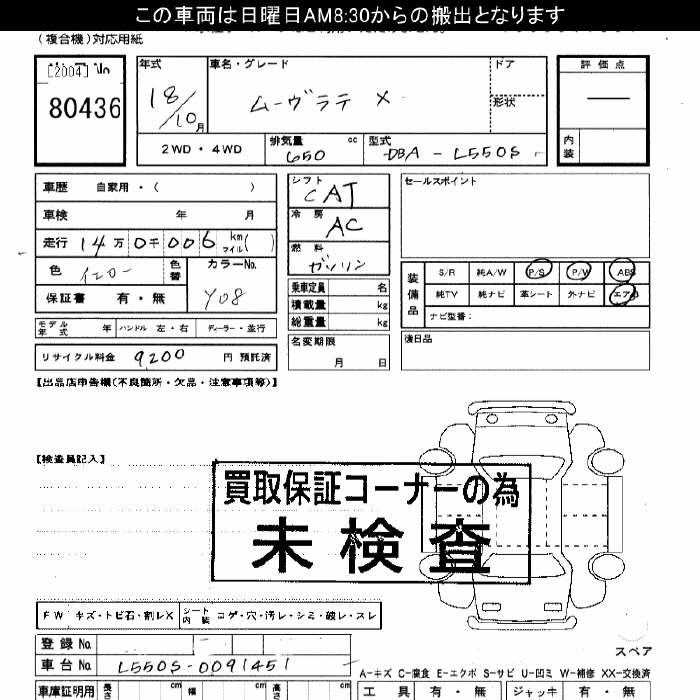 この車両は日曜日AM8:30からの搬出となります
(複合機)対応用紙
[2004] No
80436
年式
18/10月
車名・グレード
ムーヴラテ X
ドア
形状
評価点
内装
2WD・4WD
排気量 cc
650
型式
DBA-L550S
車歴 自家用・( )
車検 年 月
走行 14万0千006 km マイル( )
色 イエロー 色替
カラーNo.
Y08
保証書 有・無
モデル年式 年 ハンドル 左・右 ディーラー・並行
リサイクル料金 9200 円 預託済
シフト
CAT
冷房
AC
燃料
ガソリン
乗車定員 名
積載量 kg
総重量 kg
名変期限
月 日
セールスポイント
装備品
S/R 純A/W P/S P/W ABS
純TV 純ナビ 革シート 外ナビ エアB
ナビ型番:
後日品
【出品店申告欄(不良箇所・欠品・注意事項等)】
【検査員記入】
買取保証コーナーの為
未検査
FW キズ・トビ石・割レX
シート内装 コゲ・穴・汚レ・シミ・破レ・スレ
登録No.
車台No. L550S-0091451
車庫証明用 長さ cm 幅 cm 高さ cm
スペア
A-キズ C-腐食 E-エクボ S-サビ U-凹ミ W-補修 XX-交換済
工具 有・無 ジャッキ 有・無